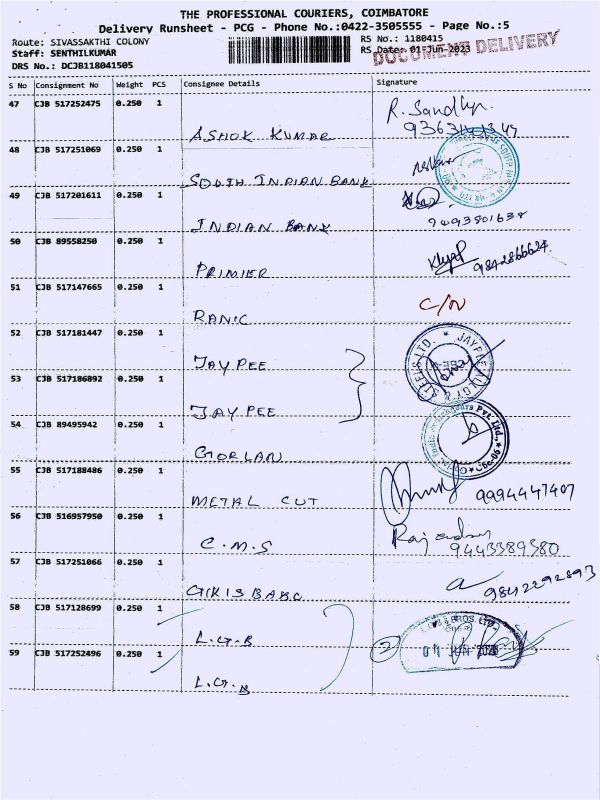 THE PROFESSIONAL COURIERS, COIMBATORE
Delivery Runsheet - PCG - Phone No.:0422-3505555 - Page No.:5
Route: SIVASSAKTHI COLONY
RS No.: 1180415
Staff: SENTHILKUMAR
RS Date: 01-Jun-2023
DOCUMENT DELIVERY
DRS No.: DCJB118041505
S No Consignment No Weight PCS Consignee Details Signature
47 CJB 517252475 0.250 1
R. Sandhya
ASHOK KUMAR
48 CJB 517251069 0.250 1
SOUTH INDIAN BANK
49 CJB 517201611 0.250 1
INDIAN BANK
9493801638
50 CJB 89558250 0.250 1
PRIMIER
9842866624
51 CJB 517147665 0.250 1
C/N
RANIC
52 CJB 517181447 0.250 1
JAYPEE
53 CJB 517186892 0.250 1
JAYPEE
54 CJB 89495942 0.250 1
GORLAN
55 CJB 517188486 0.250 1
METAL CUT 9994447407
56 CJB 516957950 0.250 1
C.M.S 9443389380
57 CJB 517251066 0.250 1
9842292893
58 CJB 517128699 0.250 1
L.G.B
2
BROS. LTD.
01 JUN 2023
59 CJB 517252496 0.250 1
L.G.B